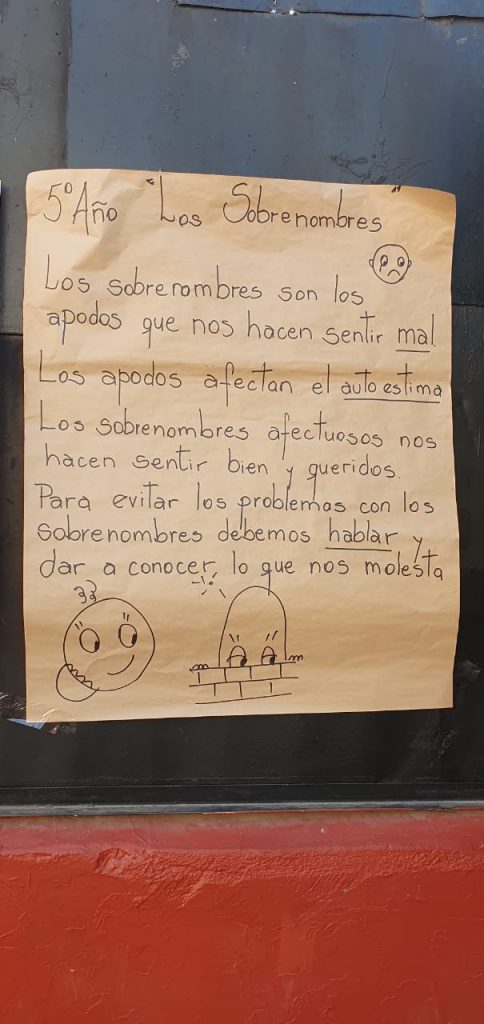 5° Año "Los Sobrenombres"
Los sobrenombres son los
apodos que nos hacen sentir mal.
Los apodos afectan el autoestima
Los sobrenombres afectuosos nos
hacen sentir bien y queridos.
Para evitar los problemas con los
sobrenombres debemos hablar y
dar a conocer lo que nos molesta